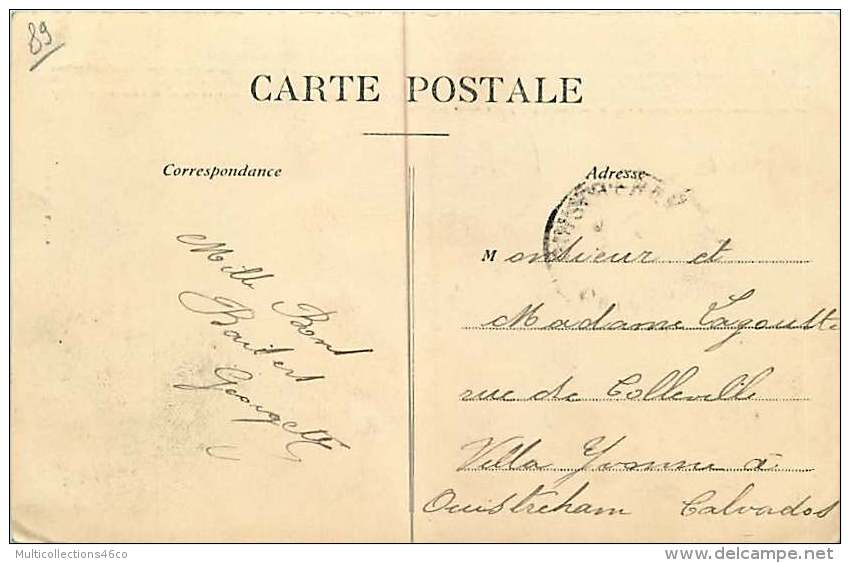 89
CARTE POSTALE
Correspondance
Adresse
Mille Bont
Baisers
Georgette
Monsieur et
Madame Lagoutte
rue de Colleville
Villa Yvonne à
Ouistreham Calvados
Multicollections46co
delcampe.net